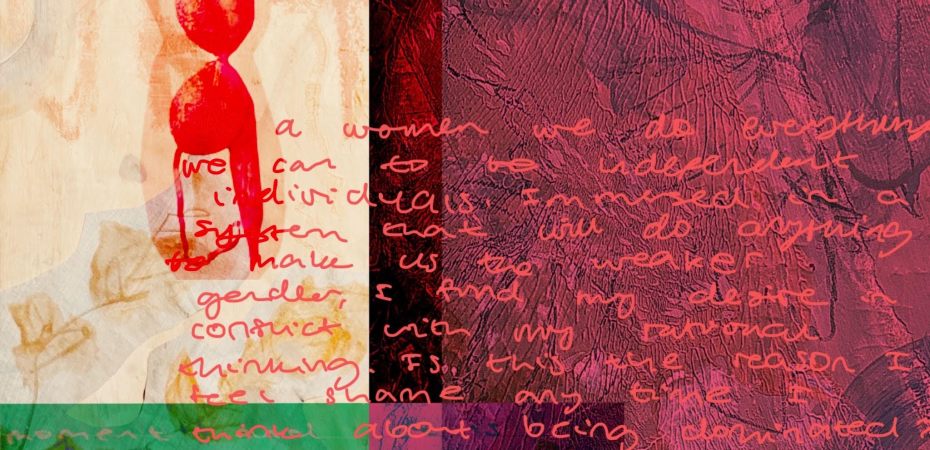 a women we do everything
we can to be independent
individuals. Immersed in a
system that will do anything
to make us the weaker
gender, I find my desire in
conflict with my rational
thinking. Is this the reason I
feel shame any time I
moment think about being dominated?